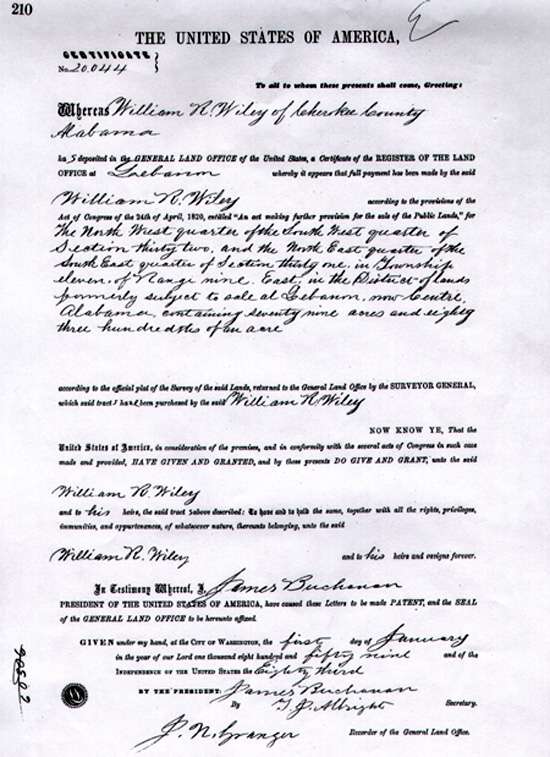 210
THE UNITED STATES OF AMERICA,
CERTIFICATE
No. 20.044
To all to whom these presents shall come, Greeting:
Whereas William R. Wiley of Cherokee County
Alabama
has deposited in the GENERAL LAND OFFICE of the United States, a Certificate of the REGISTER OF THE LAND
OFFICE at Lebanon whereby it appears that full payment has been made by the said
William R. Wiley according to the provisions of the
Act of Congress of the 24th of April, 1820, entitled "An act making further provision for the sale of the Public Lands," for
The North West quarter of the South West quarter of
Section thirty two, and the North East quarter of the
South East quarter of Section thirty one, in Township
eleven, of Range nine, East, in the District of Lands
formerly subject to sale at Lebanon, now Centre,
Alabama, containing seventy nine acres and eighty
three hundredths of an acre
according to the official plat of the Survey of the said Lands, returned to the General Land Office by the SURVEYOR GENERAL,
which said tracts have been purchased by the said William R. Wiley
NOW KNOW YE, That the
United States of America, in consideration of the premises, and in conformity with the several acts of Congress in such case
made and provided, HAVE GIVEN AND GRANTED, and by these presents DO GIVE AND GRANT, unto the said
William R. Wiley
and to his heirs, the said tracts above described: To have and to hold the same, together with all the rights, privileges,
immunities, and appurtenances, of whatsoever nature, thereunto belonging, unto the said
William R. Wiley and to his heirs and assigns forever.
In Testimony Whereof, I, James Buchanan
PRESIDENT OF THE UNITED STATES OF AMERICA, have caused these Letters to be made PATENT, and the SEAL
of the GENERAL LAND OFFICE to be hereunto affixed.
GIVEN under my hand, at the CITY OF WASHINGTON, the first day of January
in the year of our Lord one thousand eight hundred and fifty nine and of the
INDEPENDENCE OF THE UNITED STATES the Eighty third
BY THE PRESIDENT: James Buchanan
By T. J. Albright Secretary.
J. N. Granger Recorder of the General Land Office.